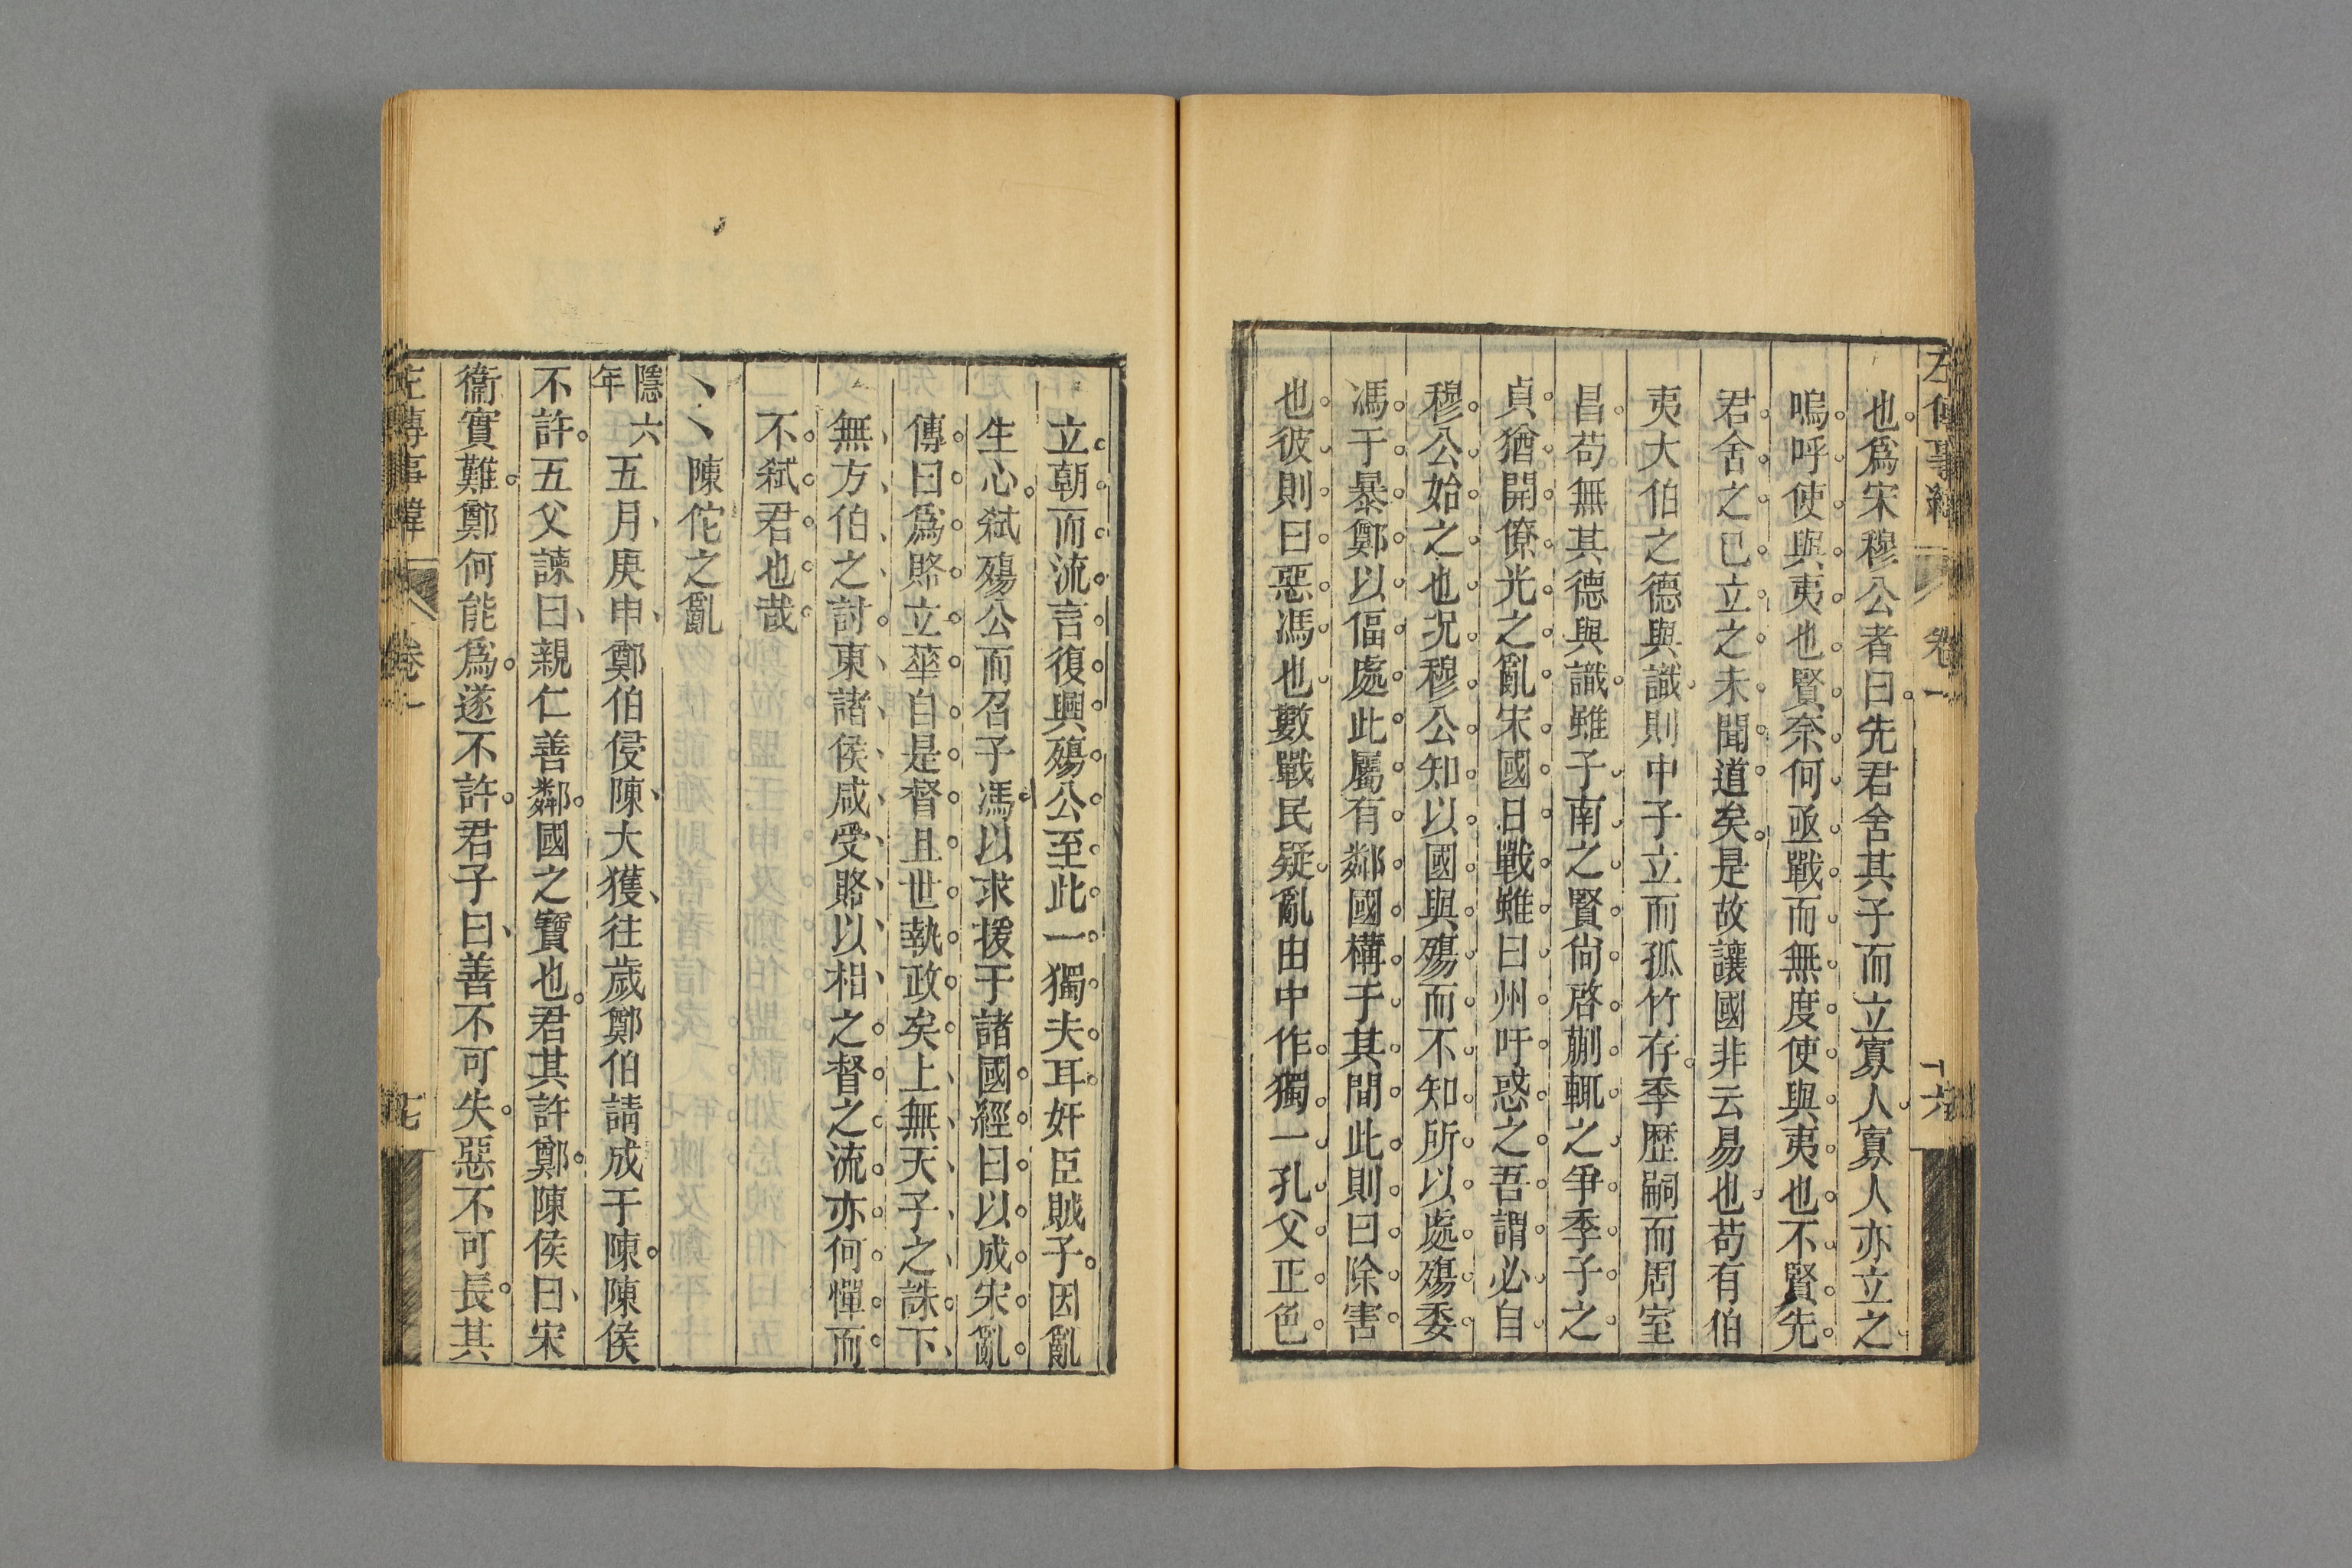 左傳事緯 卷一 十六
也爲宋穆公者曰先君舍其子而立寡人寡人亦立之
嗚呼使與夷也賢奈何亟戰而無度使與夷也不賢先
君舍之已立之未聞道矣是故讓國非云易也苟有伯
夷大伯之德與識則中子立而孤竹存季歷嗣而周室
昌苟無其德與識雖子南之賢尙啓蒯輒之爭季子之
貞猶開僚光之亂宋國日戰雖曰州吁惑之吾謂必自
穆公始之也况穆公知以國與殤而不知所以處殤委
馮于暴鄭以偪處此屬有鄰國構于其間此則曰除害
也彼則曰惡馮也數戰民疑亂由中作獨一孔父正色
立朝而流言復興殤公至此一獨夫耳奸臣賊子因亂
生心弒殤公而召子馮以求援于諸國經曰以成宋亂
傳曰爲賂立華自是督且世執政矣上無天子之誅下
無方伯之討東諸侯咸受賂以相之督之流亦何憚而
不弒君也哉
陳佗之亂
隱六年五月庚申鄭伯侵陳大獲往歲鄭伯請成于陳陳侯
不許五父諫曰親仁善鄰國之寶也君其許鄭陳侯曰宋
衞實難鄭何能爲遂不許君子曰善不可失惡不可長其
左傳事緯 卷一 十七